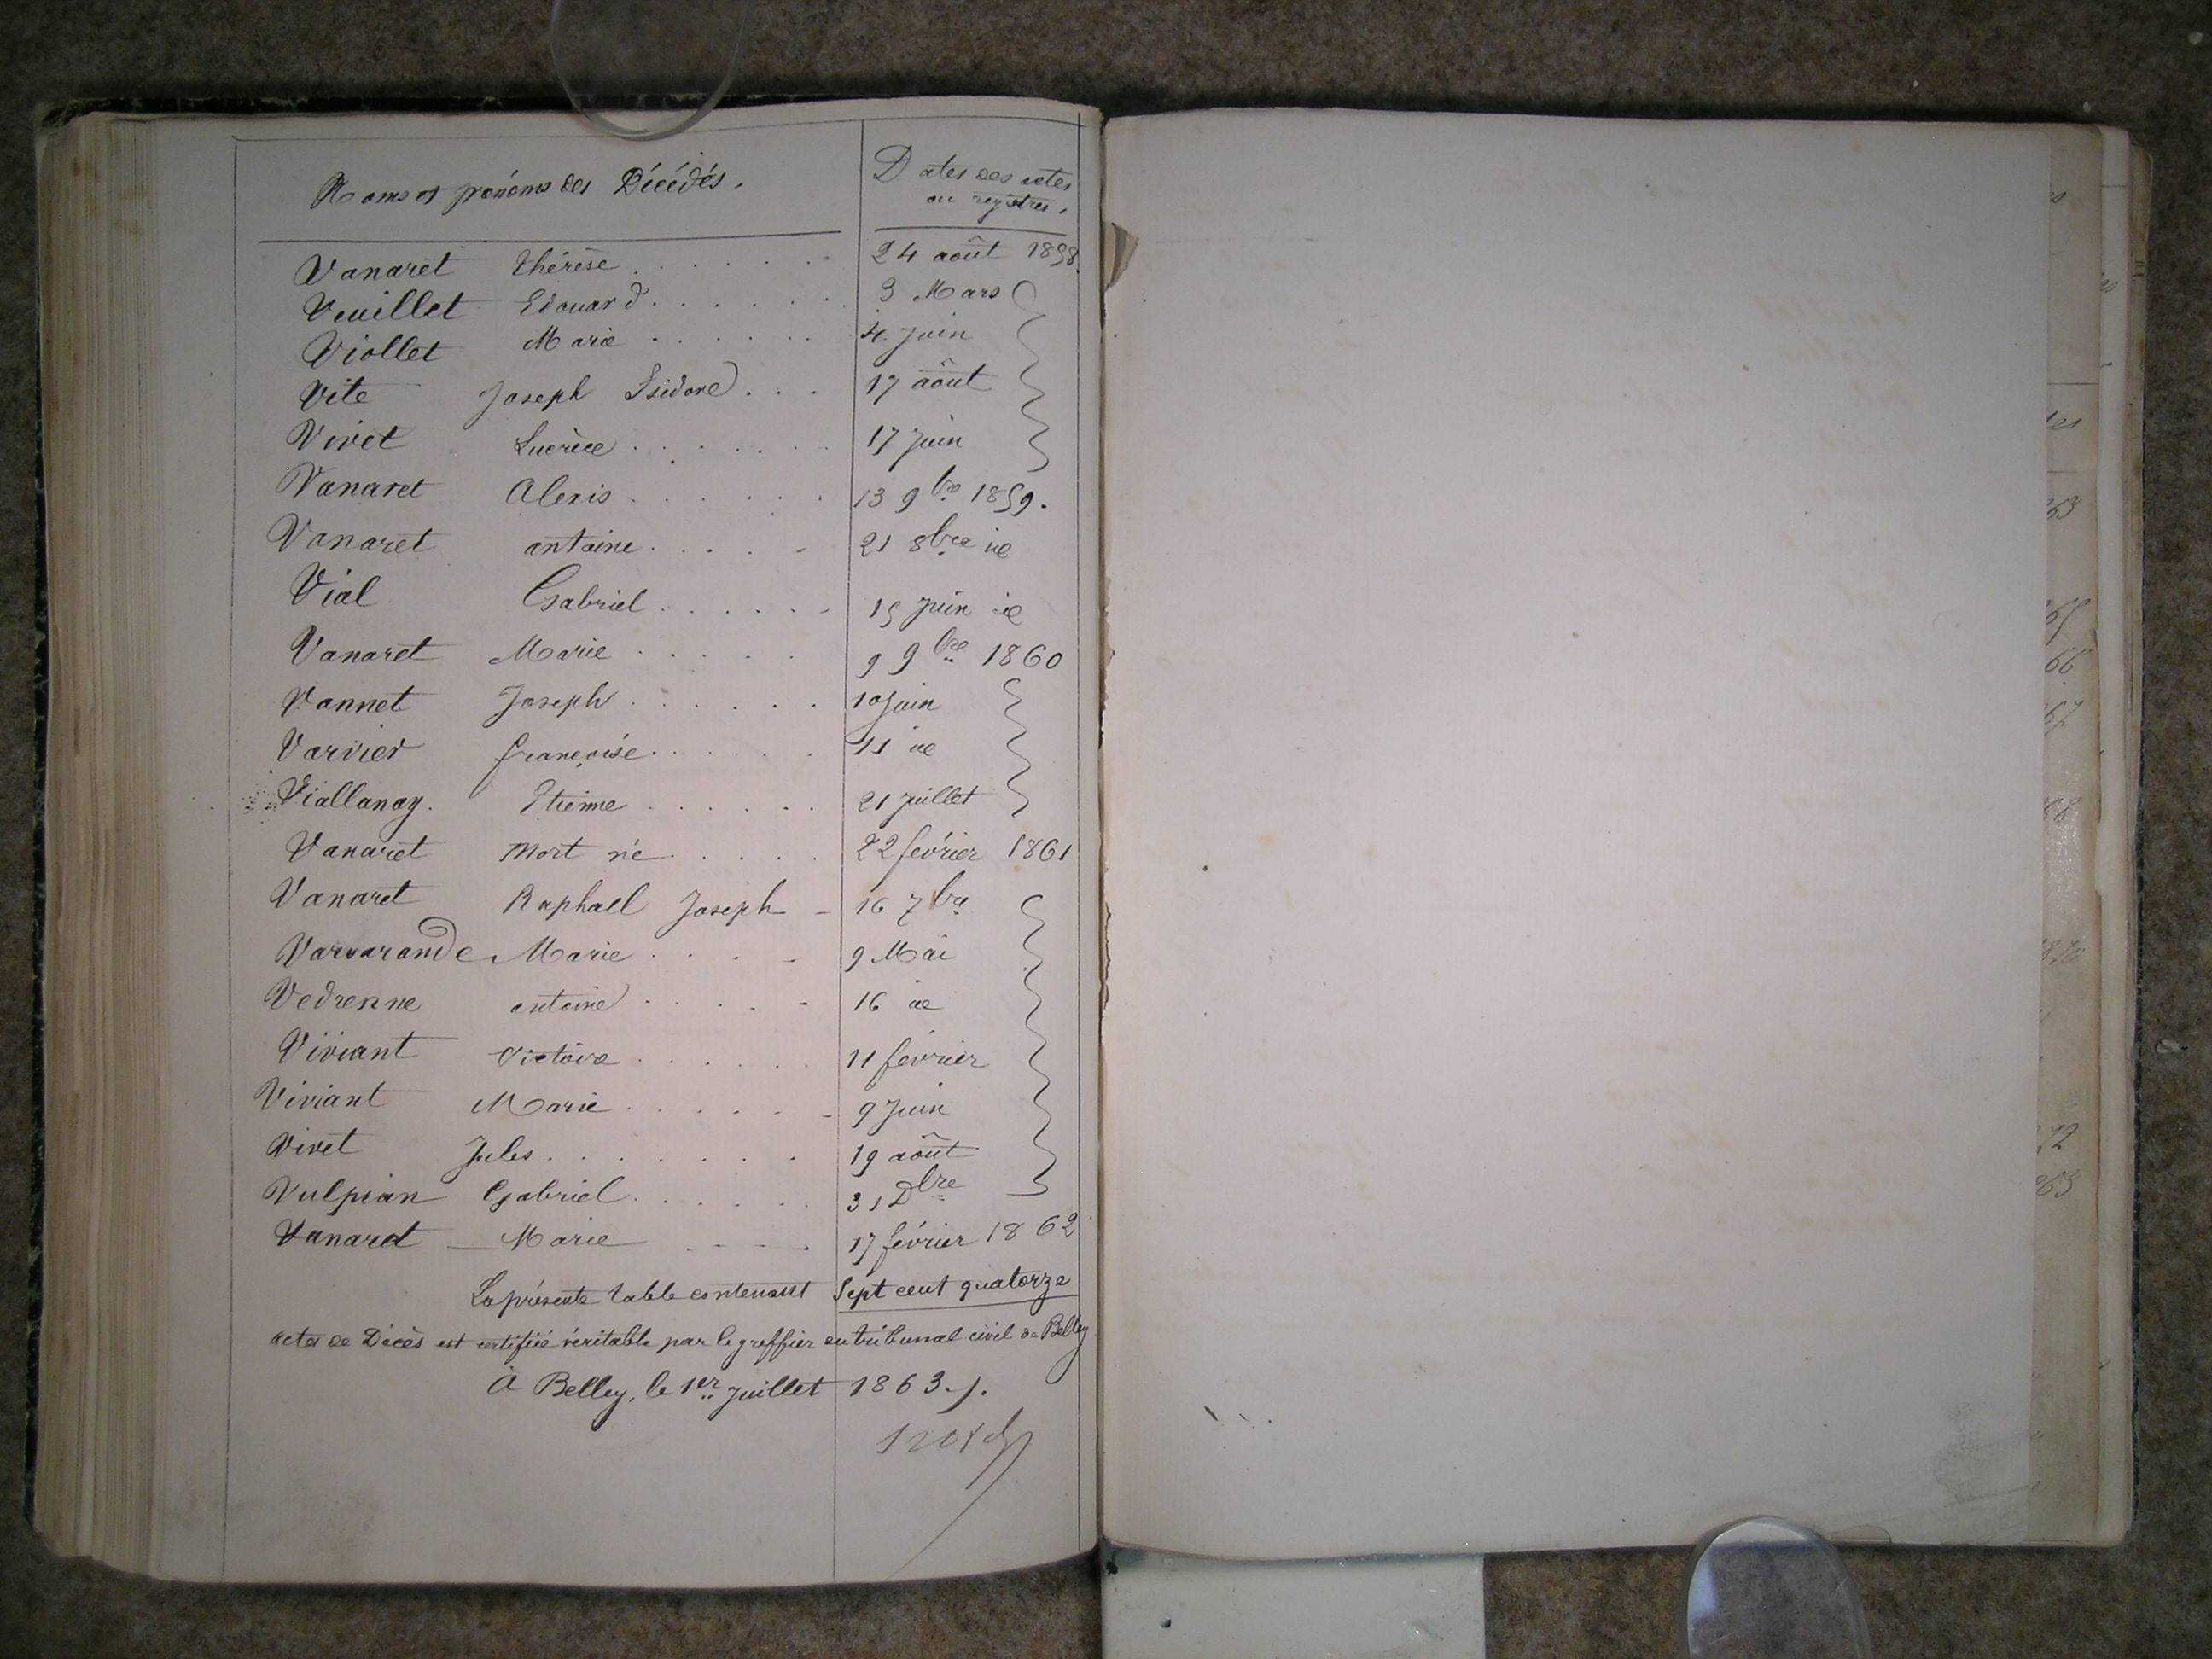 Noms et prénoms des Décédés.
Dates des actes
au registres.
Vanaret Thérèse . . . . . . 24 août 1858.
Veuillet Edouard . . . . . . 3 Mars
Viollet Marie . . . . . . 4 juin
Vite Joseph Isidore . . . 17 août
Viret Lucrèce . . . . . . 17 juin
Vanaret Alexis . . . . . . 13 9bre 1859.
Vanaret antoine . . . . - 21 8bre id
Vial Gabriel . . . . . - 15 juin id
Vanaret Marie . . . . . 9 9bre 1860
Vannet Joseph . . . . . . 10 juin
Varvier françoise . . . . . 11 id
Viallanay. Etienne . . . . . . 21 juillet
Vanaret Mort né . . . . . 22 février 1861
Vanaret Raphael Joseph - 16 7bre
Varvarande Marie . . . . - 9 Mai
Vedrenne antoine . . . . - 16 id
Viviant Victoire . . . . . . 11 février
Viviant Marie . . . . . - 9 Juin
Viret Jules . . . . . . . 19 août
Vulpian Gabriel . . . . . . 31 Dbre
Vanaret - Marie - - - . 17 février 1862
La présente table contenant Sept cent quatorze
actes de Décès est certifiée véritable par le greffier du tribunal civil de Belley
à Belley, le 1er juillet 1863.